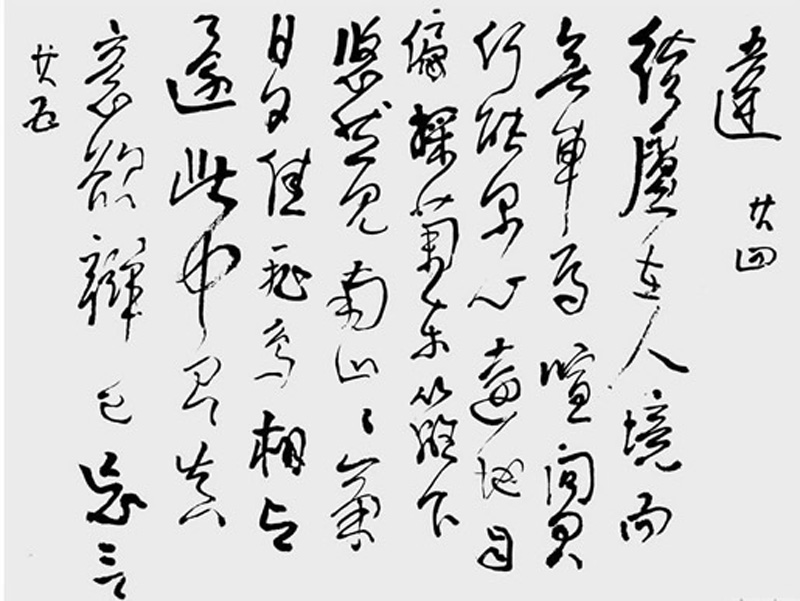 違 廿四
結廬在人境而
無車馬喧問君
何能爾心遠地自
偏採菊東籬下
悠然見南山〻氣
日夕佳飛鳥相与
還此中有真
意欲辯已忘言
廿五